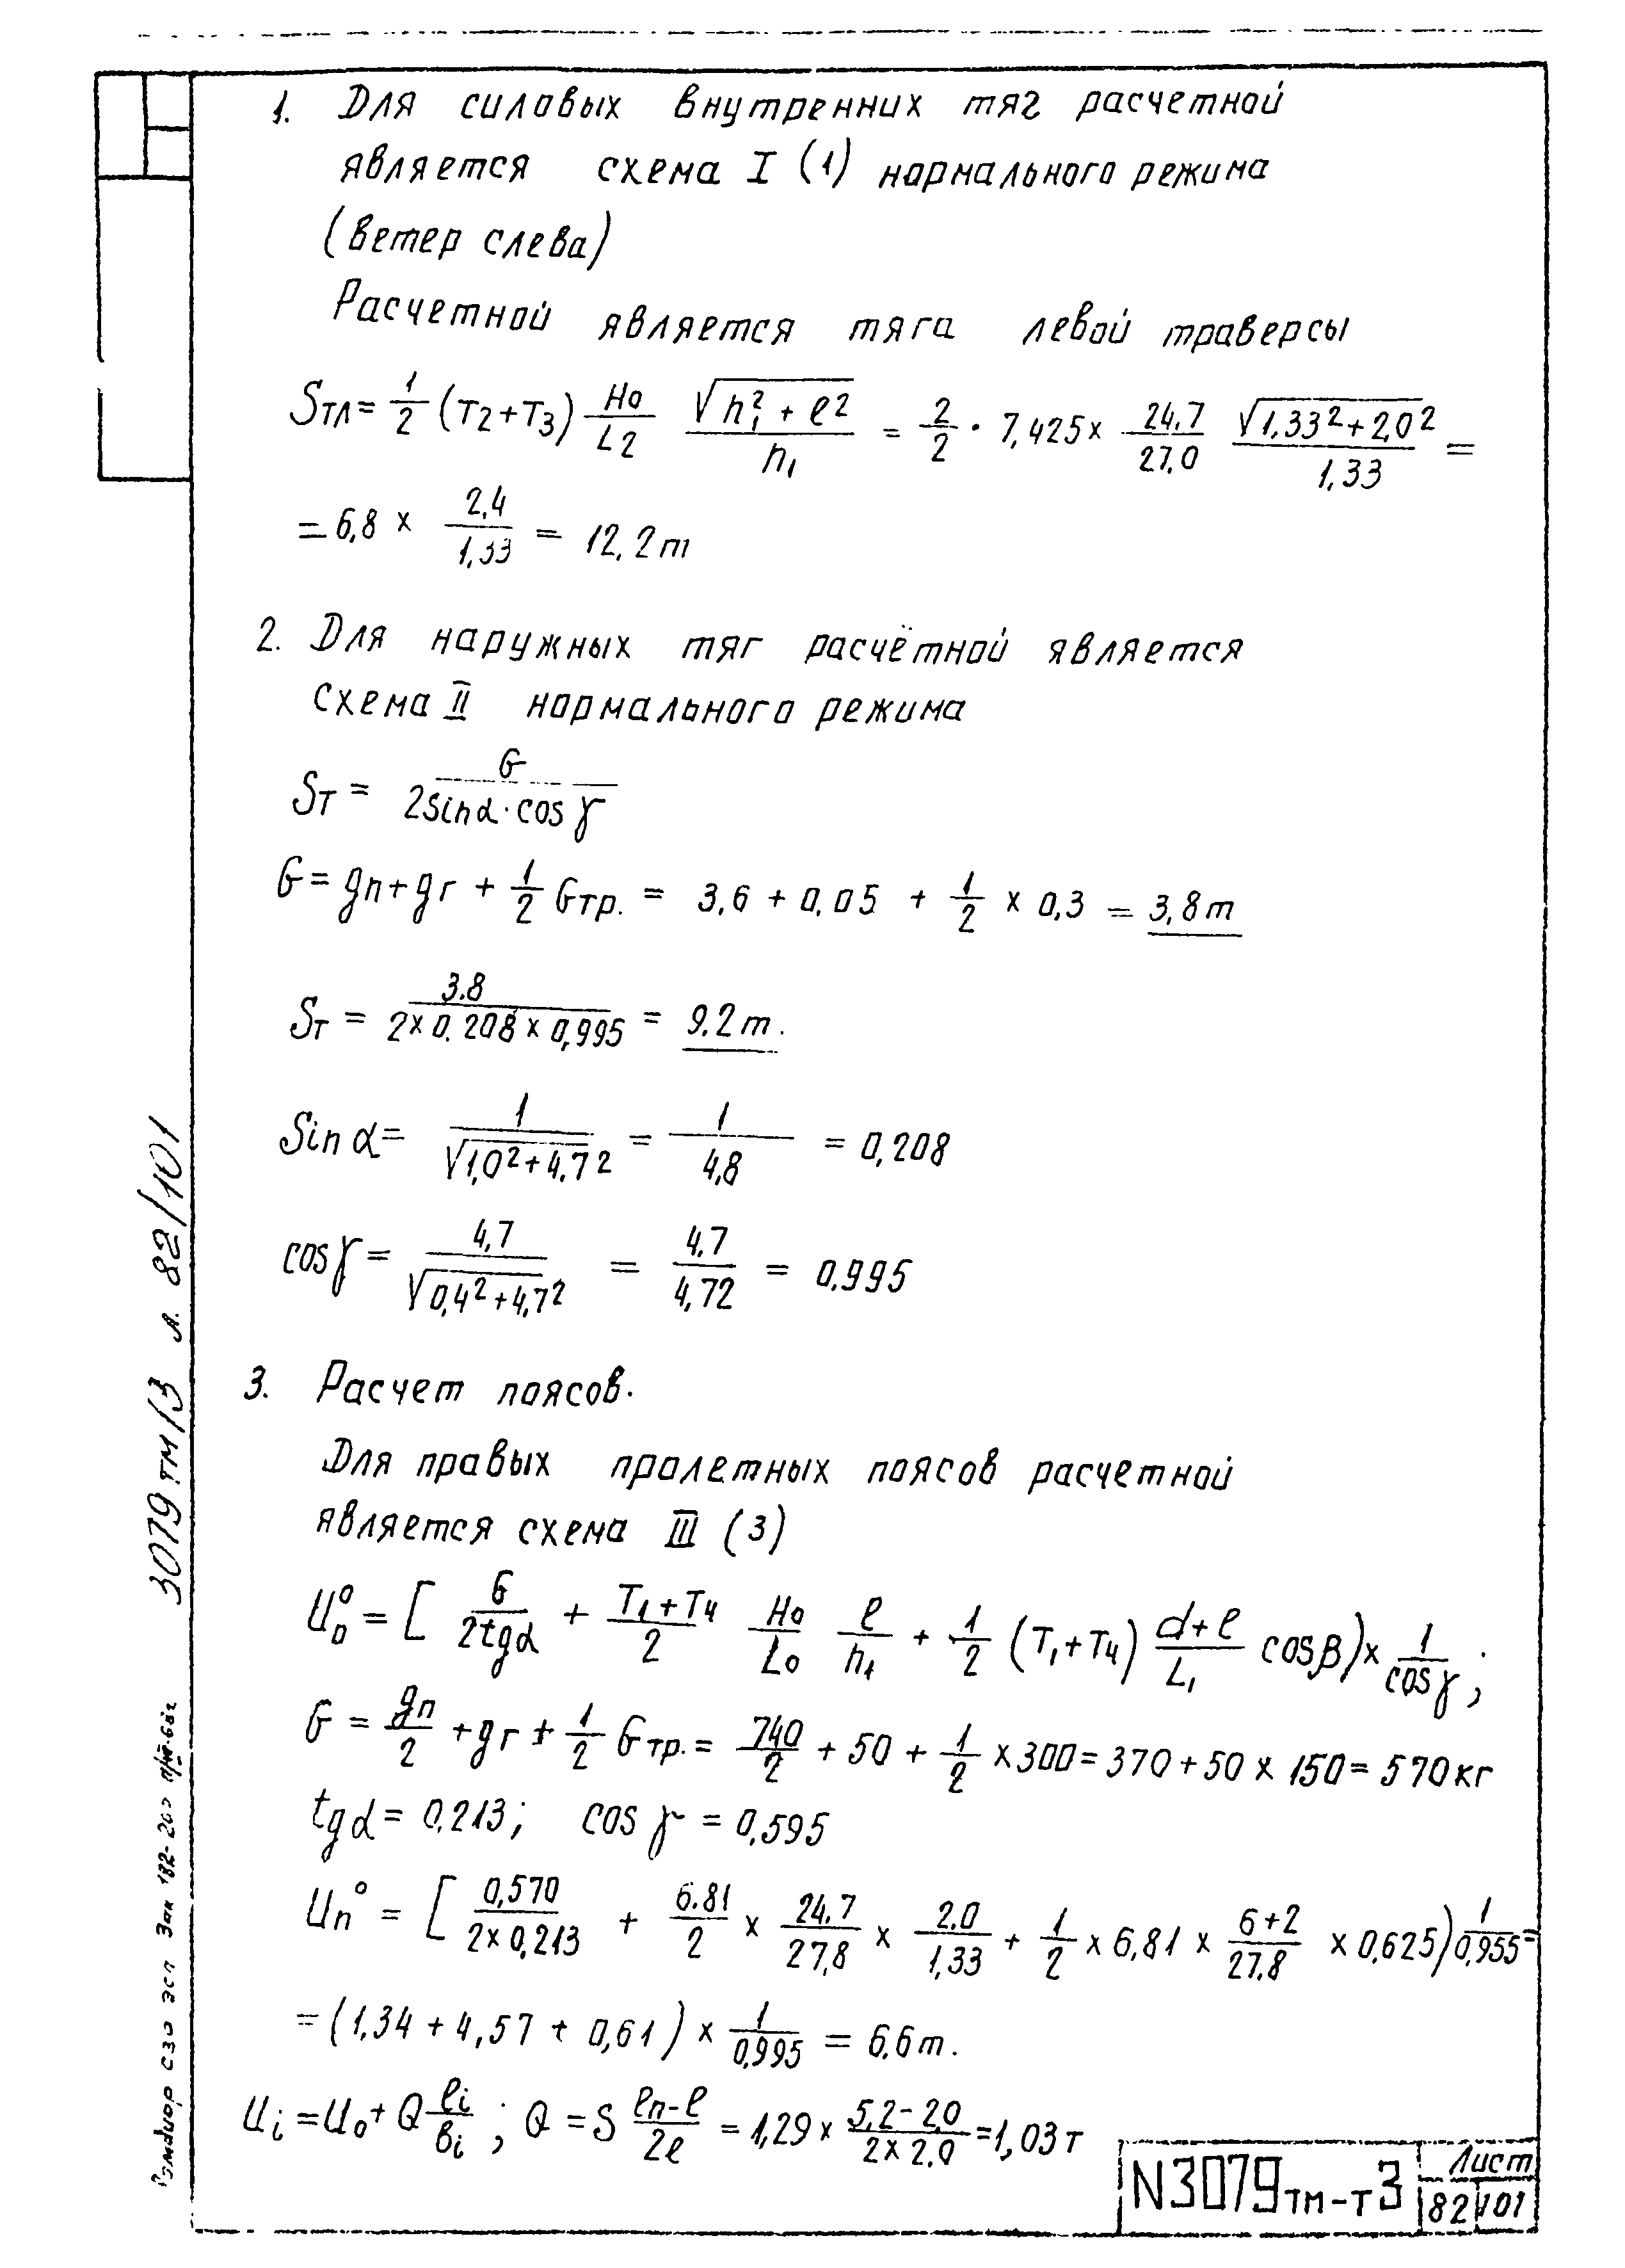 1. Для силовых внутренних тяг расчетной
является схема I (1) нормального режима
(ветер слева)
Расчетной является тяга левой траверсы
Sтл = 1/2 (T2+T3) H0/L2 √(h1²+ℓ²)/h1 = 2/2 · 7,425 × 24.7/27,0 √(1,33²+2,0²)/1,33 =
= 6,8 × 2,4/1,33 = 12,2т
2. Для наружных тяг расчётной является
схема II нормального режима
Sт = G/(2Sinα·cosγ)
G = gп+gг + 1/2 Gтр. = 3,6 + 0,05 + 1/2 × 0,3 = 3,8т
Sт = 3.8/(2×0.208×0,995) = 9.2т.
Sin α = 1/√(1,0²+4,7²) = 1/4,8 = 0,208
cosγ = 4,7/√(0,4²+4,7²) = 4,7/4,72 = 0.995
3. Расчет поясов.
Для правых пролетных поясов расчетной
является схема III (3)
U₀⁰ = [ G/2tgα + (T1+T4)/2 H0/L0 ℓ/h1 + 1/2 (T1+T4) (d+ℓ)/L1 cosβ) × 1/cosγ ;
G = gп/2 + gг + 1/2 Gтр. = 740/2 + 50 + 1/2 ×300 = 370+50 × 150 = 570кг
tgα = 0,213; cos γ = 0,595
Uп⁰ = [ 0,570/(2×0,213) + 6.81/2 × 24.7/27,8 × 2.0/1,33 + 1/2 × 6,81 × (6+2)/27.8 × 0,625) 1/0,955 =
= (1,34 + 4,57 + 0,61) × 1/0,995 = 6,6т.
Ui = U0 + Q ℓi/вi ; Q = S (ℓп-ℓ)/2ℓ = 1,29 × (5,2-2,0)/(2×2.0) = 1,03т
N3079тм-т3
Лист
82 101
3079тм/3 л. 82/101